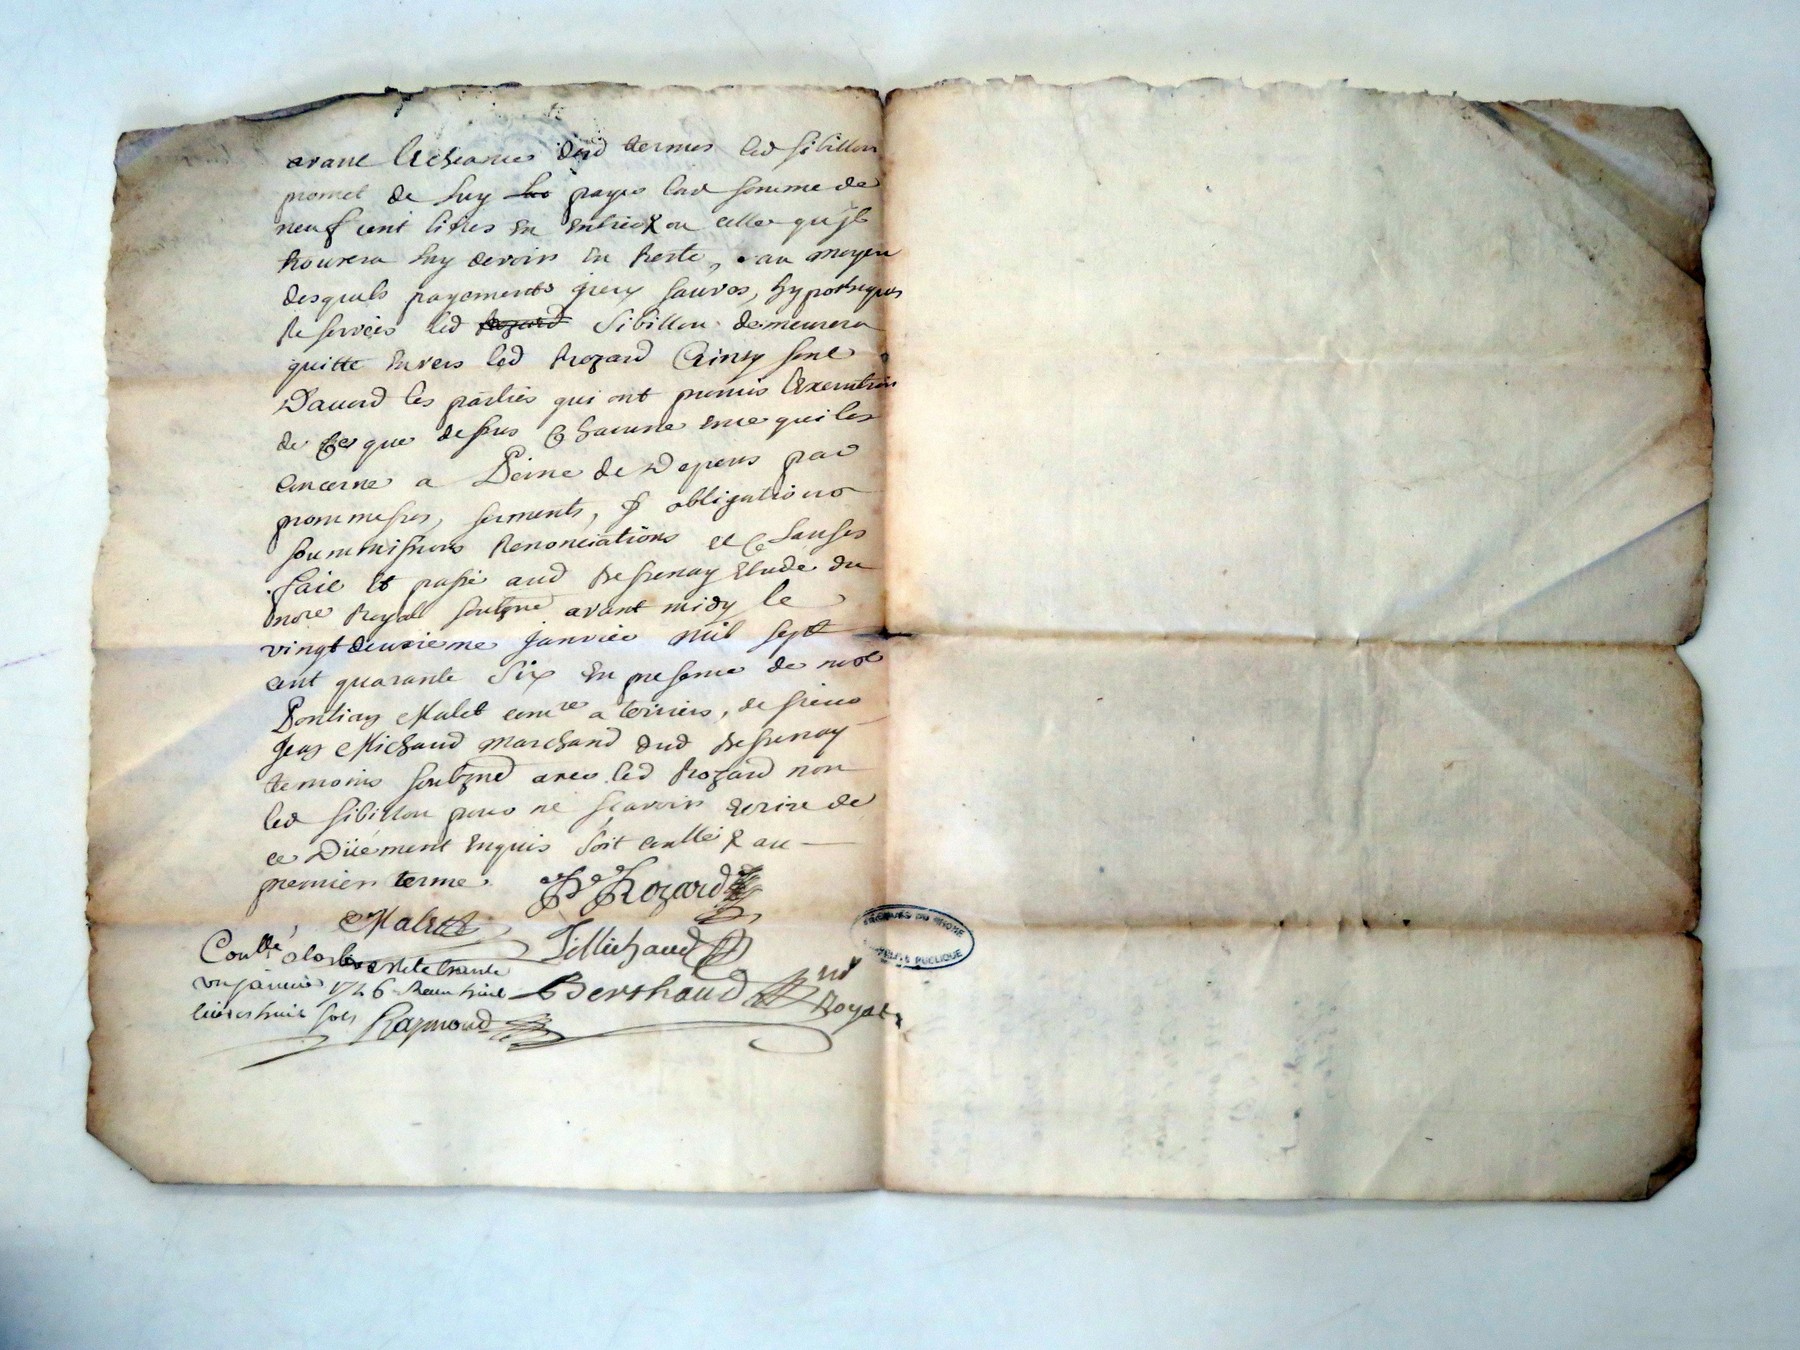 avant lecheance desd termes led sibillon
promet de luy payer lad somme de
neuf cent livres en entier ou celle qu'il
trouvera luy devoir en reste, au moyen
desquels payements jceux sauves, hypotheques
reservées led Rozard Sibillon demeurera
quitte envers led Rozard Ainsy sont
D'acord les parties qui ont promis l'execution
de ce que dessus Chacune ence qui les
concerne a Peine de Depens par
promesses, serments, & obligations
soummissions Renonciations et Clauses
fait et passé aud Bessenay Etude du
nore Royal soubzné avant midy le
vingt deuxieme janvier mil sept
cent quarante Six en presence de mre
Malet de sieur
Jean Michaud marchand dud Bessenay
temoins soubzné avec led Rozard non
led sibillon pour ne sçavoir ecrire de
ce Düement enquis soit contlé & au
premier terme.
Rozard
Malet
JMichaud
Contlé a
janvier 1746
Berthaud nre
Royal
livres huit sols Raymond
ARCHIVES DU RHONE
PUBLIQUE